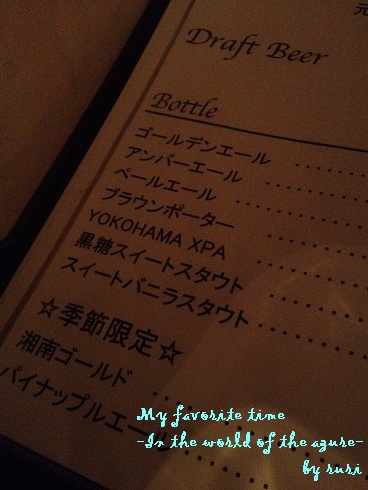 Draft Beer
Bottle
ゴールデンエール
アンバーエール
ペールエール
ブラウンポーター
YOKOHAMA XPA
黒糖スイートスタウト
スイートバニラスタウト
☆季節限定☆
湘南ゴールド
パイナップルエール
My favorite time
-In the world of the azure-
by ruri